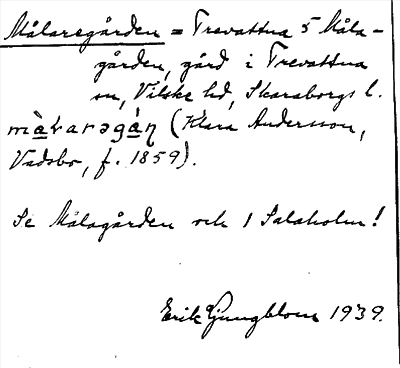 Målaregården = Trevattna 5 Måla-
gården, gård i Trevattna
sn, Vilske hd, Skaraborgs l.
màlarəgáɳ (Klara Andersson,
Vadsbo, f. 1859).
Se Målagården och 1 Salaholm!
Erik Ljungblom 1939.